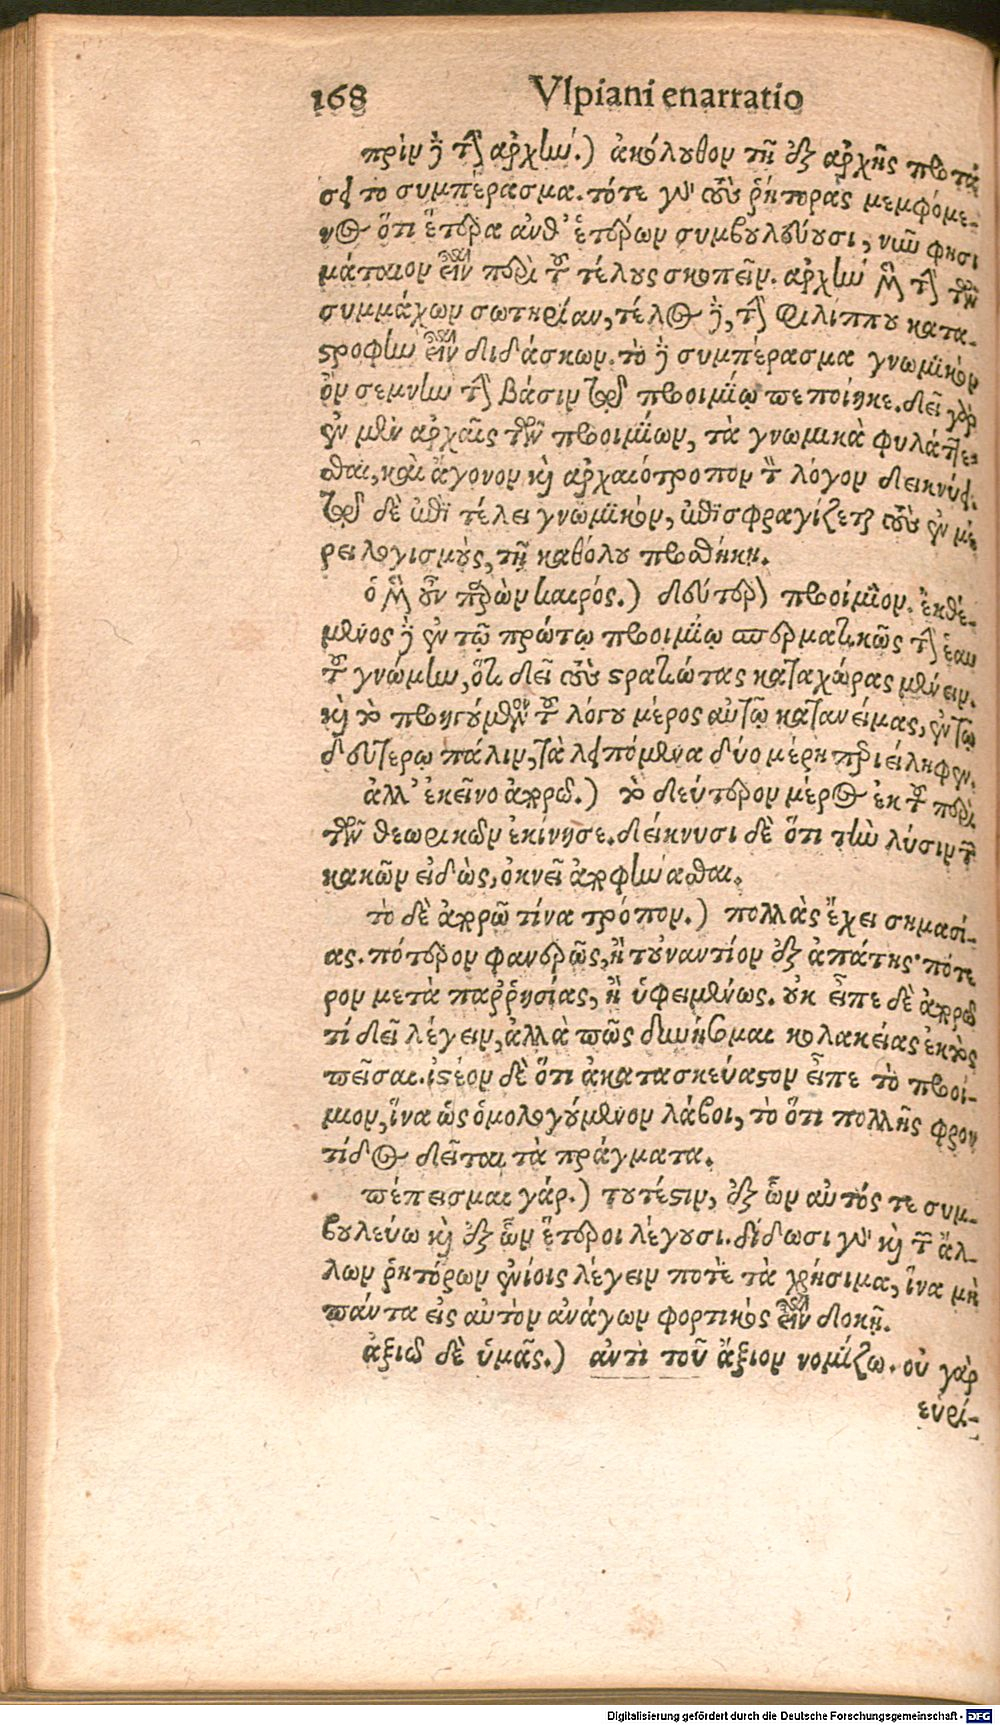 168 Vlpiani enarratio
πρὶν δὲ τὴν ἀρχὴν.) ἀκόλουθον τῇ ἐξ ἀρχῆς προτά
σει το συμπέρασμα. τότε γὰρ τοὺς ῥήτορας μεμφόμε-
νος ὅτι ἕτερα ἀνθ' ἑτέρων συμβουλεύουσι, νῦν φησι
μάταιον εἶναι περὶ τοῦ τέλους σκοπεῖν. ἀρχὴν μὲν τὴν τῶν
συμμάχων σωτηρίαν, τέλος δὲ, τὴν Φιλίππου κατα-
στροφὴν εἶναι διδάσκων. τὸ δὲ συμπέρασμα γνωμικὸν
ὂν σεμνὴν τὴν βάσιν τοῦ προιμίῳ πεποίηκε. δεῖ γὰρ
ἐν μὲν ἀρχαῖς τῶν προιμίων, τὰ γνωμικὰ φυλάττε-
σθαι, καὶ ἄγονον καὶ ἀρχαιότροπον τὸν λόγον δεικνύει.
τοῦ δὲ ἐπὶ τέλει γνωμικὸν, ἐπισφραγίζεται τοὺς ἐν μέ
ρει λογισμοὺς, τῇ καθόλου προσθήκῃ.
ὁ μὲν οὖν παρὼν καιρός.) δεύτερον προίμιον. ἐκθέ-
μενος δὲ ἐν τῷ πρώτῳ προιμίῳ σπερματικῶς τὴν ἑαυ
τοῦ γνώμην, ὅτι δεῖ τοὺς στρατιώτας κατὰ χώρας μένειν.
καὶ τὸ προηγούμενον τοῦ λόγου μέρος αὐτῷ κατανείμας, ἐν τῷ
δευτέρῳ πάλιν, τὰ λειπόμενα δύο μέρη περιείληφεν.
ἀλλ' ἐκεῖνο ἀπορῶ.) τὸ δεύτερον μέρος ἐκ τοῦ περὶ
τῶν θεωρικῶν ἐκίνησε. δείκνυσι δὲ ὅτι τὴν λύσιν τῶν
κακῶν εἰδὼς, ὀκνεῖ ἀποφήνασθαι.
τὸ δὲ ἀπορῶ τίνα τρόπον.) πολλὰς ἔχει σημασί-
ας. πότερον φανερῶς, ἢ τοὐναντίον ἐξ ἀπάτης· πότε
ρον μετὰ παῤῥησίας, ἢ ὑφειμένως. οὐκ εἶπε δὲ ἀπορῶ
τί δεῖ λέγειν, ἀλλὰ πῶς δυνήσομαι κολακείας ἐκτὸς
πεῖσαι. ἰστέον δὲ ὅτι ἀκατασκεύαστον εἶπε τὸ προί-
μιον, ἵνα ὡς ὁμολογούμενον λάβοι, τὸ ὅτι πολλῆς φρον
τίδος δεῖται τὰ πράγματα.
πέπεισμαι γάρ.) τουτέστιν, ἐξ ὧν αὐτός τε συμ-
βουλεύω καὶ ἐξ ὧν ἕτεροι λέγουσι. δίδωσι γὰρ καὶ τῶν ἄλ-
λων ῥητόρων ἐνίοις λέγειν ποτὲ τὰ χρήσιμα, ἵνα μὴ
πάντα εἰς αὐτὸν ἀνάγων φορτικὸς εἶναι δοκῇ.
ἀξιῶ δὲ ὑμᾶς.) ἀντὶ τοῦ ἄξιον νομίζω. οὐ γὰρ
εὑρί-
Digitalisierung gefördert durch die Deutsche Forschungsgemeinschaft - DFG